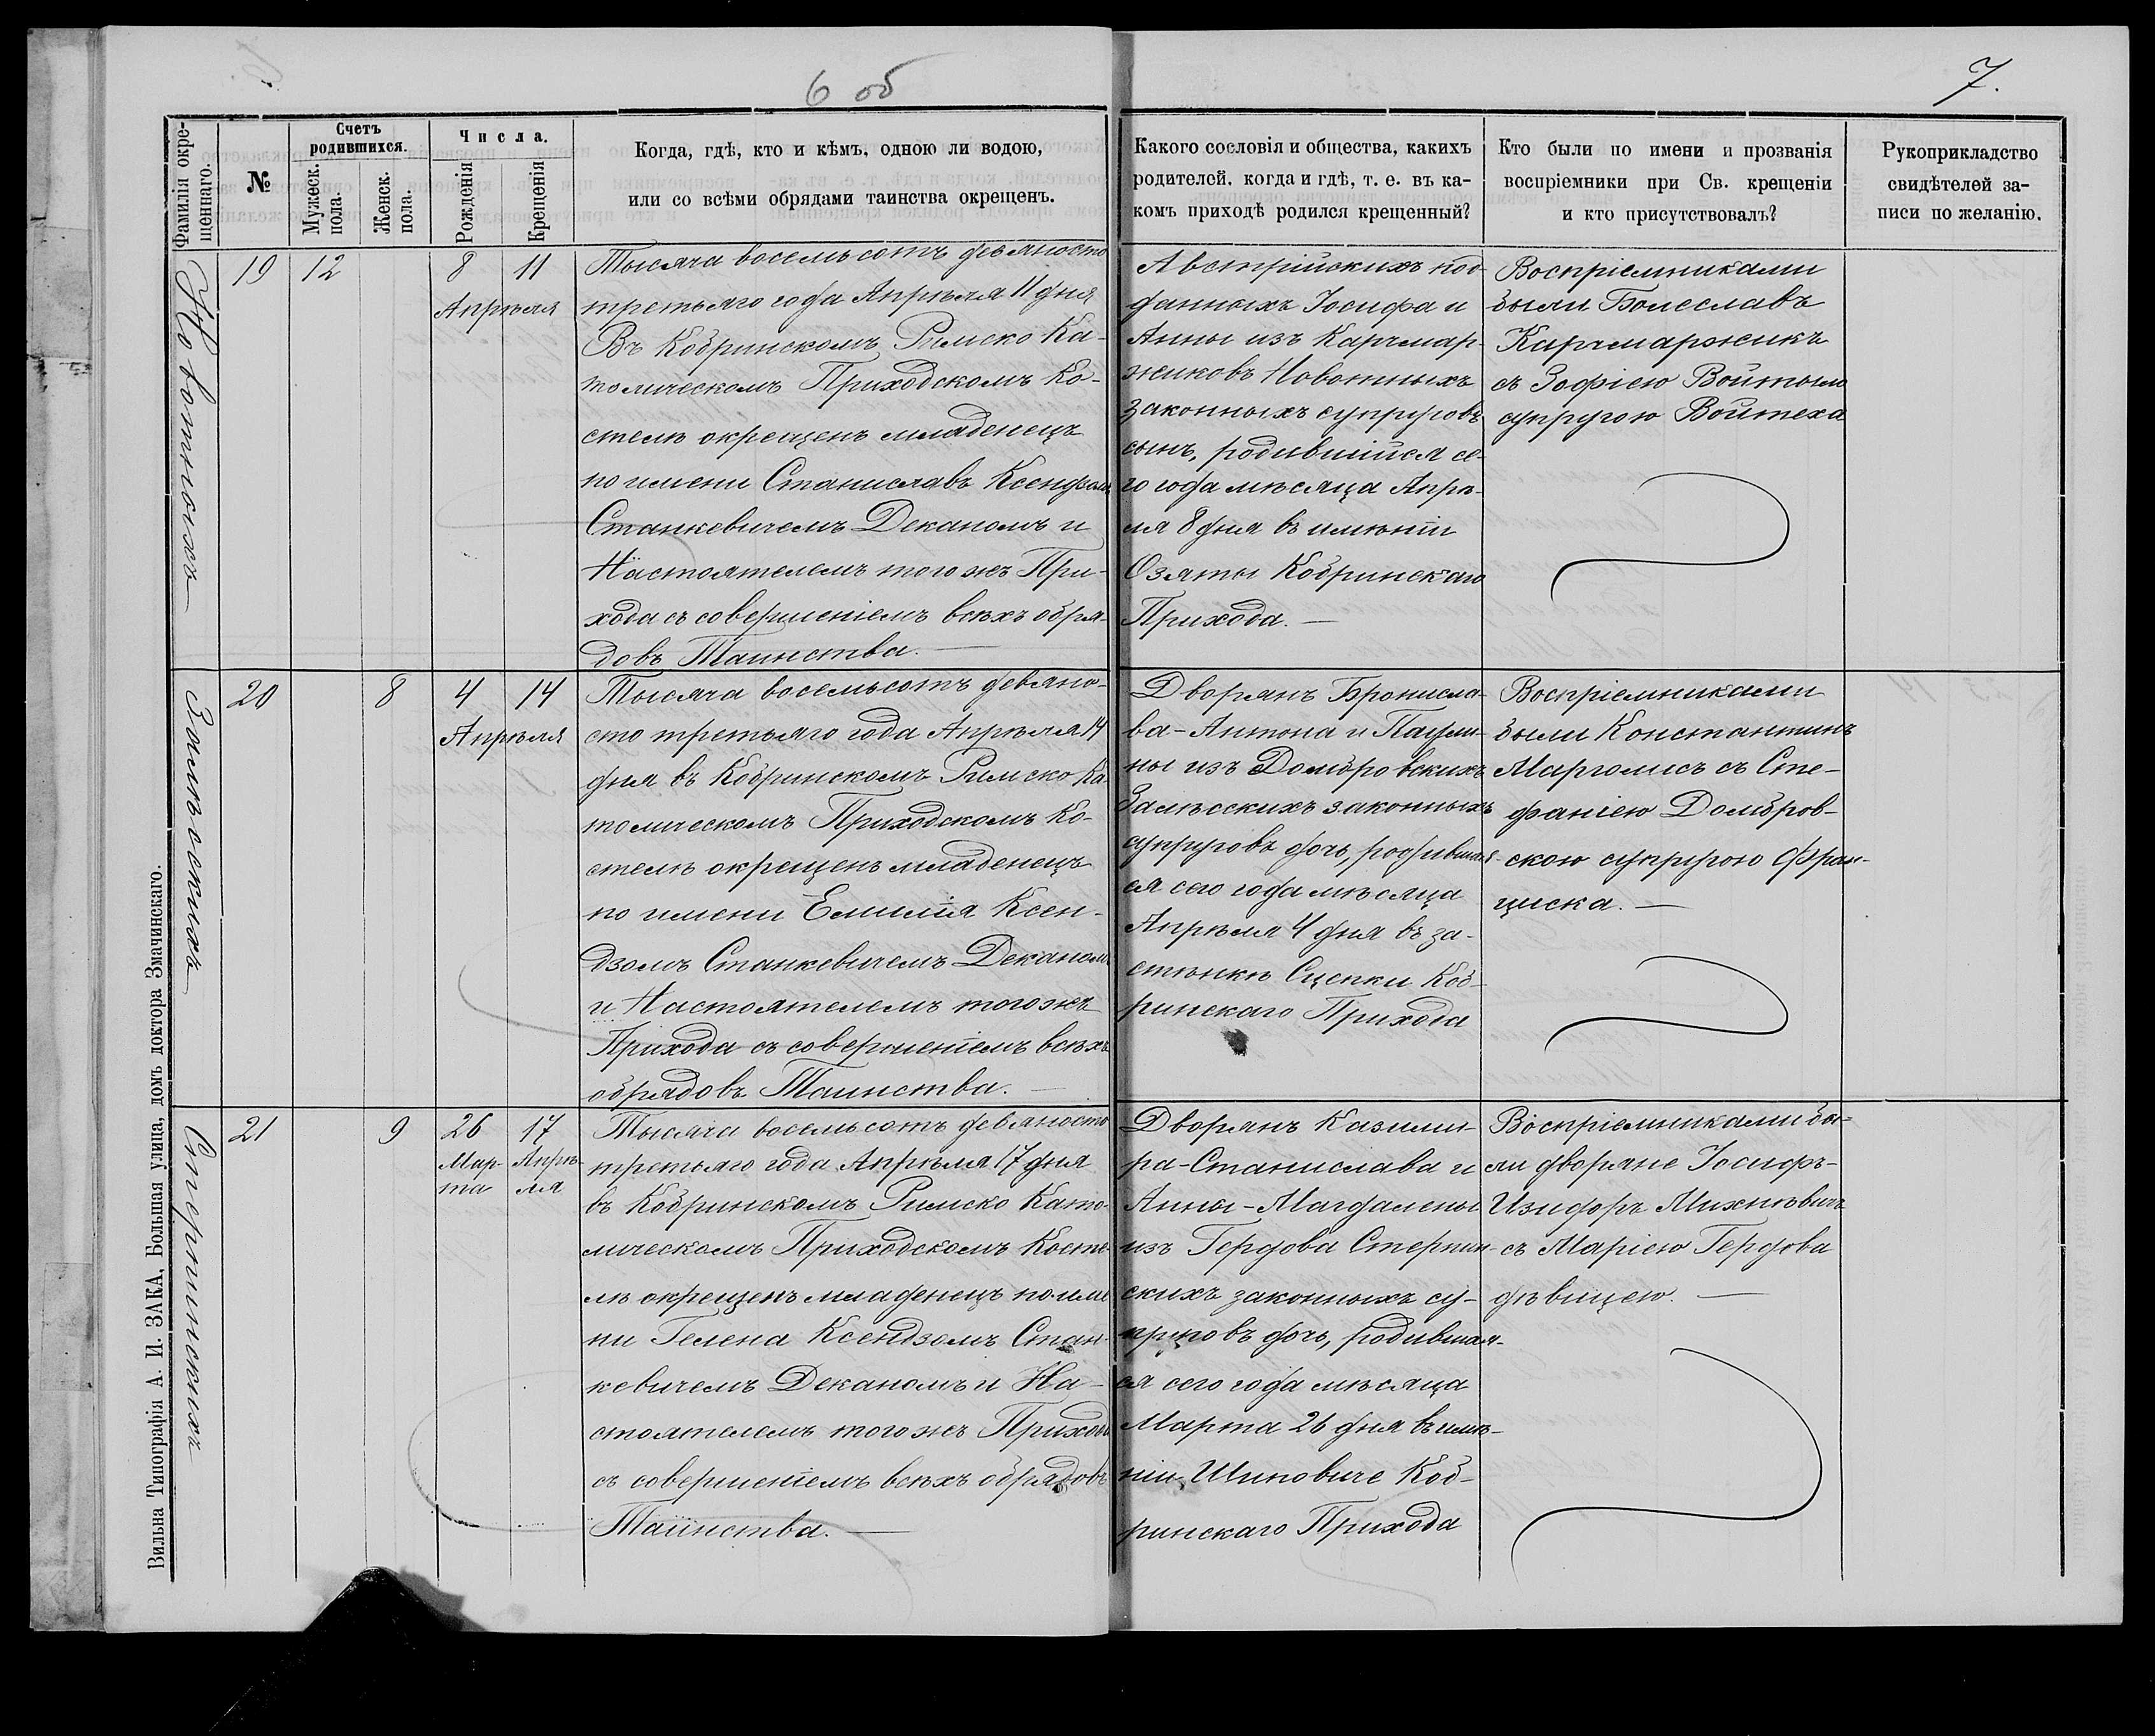 6 об
7.
Фамилія окре-
щеннаго.
№
Счетъ
родившихся.
Мужеск.
пола.
Женск.
пола.
Числа.
Рожденія
Крещенія
Когда, гдѣ, кто и кѣмъ, одною ли водою,
или со всѣми обрядами таинства окрещенъ.
Какого сословія и общества, какихъ
родителей, когда и гдѣ, т. е. въ ка-
комъ приходѣ родился крещенный?
Кто были по имени и прозванія
воспріемники при Св. крещеніи
и кто присутствовалъ?
Рукоприкладство
свидѣтелей за-
писи по желанію.
Новотныхъ
19
12
8
11
Апрѣля
Тысяча восемьсотъ девяносто
третьяго года Апрѣля 11 дня
Въ Кобринскомъ Римско Ка-
толическомъ Приходскомъ Ко-
стелѣ окрещенъ младенецъ
по имени Станиславъ Ксендзомъ
Станкевичемъ Деканомъ и
Настоятелемъ того же При-
хода съ совершеніемъ всѣхъ обря-
довъ Таинства.
Австрійскихъ под-
данныхъ Іосифа и
Анны изъ Карчмар-
жиковъ Новотныхъ
законныхъ супруговъ
сынъ, родившійся се-
го года мѣсяца Апрѣ-
ля 8 дня въ имѣніи
Озяты Кобринскаго
Прихода.
Воспріемниками
были Болеславъ
Карчмаржикъ
съ Зофіею Войтыли
супругою Войтеха
Залѣсскихъ
20
8
4
14
Апрѣля
Тысяча восемьсотъ девяно-
сто третьяго года Апрѣля 14
дня въ Кобринскомъ Римско Ка-
толическомъ Приходскомъ Ко-
стелѣ окрещенъ младенецъ
по имени Емилія Ксен-
дзомъ Станкевичемъ Деканомъ
и Настоятелемъ того же
Прихода съ совершеніемъ всѣхъ
обрядовъ Таинства.
Дворянъ Бронисла-
ва-Антона и Паули-
ны изъ Домбровскихъ
Залѣсскихъ законныхъ
супруговъ дочь, родившая-
ся сего года мѣсяца
Апрѣля 4 дня въ за-
стѣнкѣ Сцепки Коб-
ринскаго Прихода
Воспріемниками
были Константинъ
Марголисъ съ Сте-
фаніею Домбров-
скою супругою Фран-
циска.
Стерпинскихъ
21
9
26
17
Мар-
та
Апрѣ-
ля
Тысяча восемьсотъ девяносто
третьяго года Апрѣля 17 дня
въ Кобринскомъ Римско Като-
лическомъ Приходскомъ Косте-
лѣ окрещенъ младенецъ по име-
ни Гелена Ксендзомъ Стан-
кевичемъ Деканомъ и На-
стоятелемъ того же Прихода
съ совершеніемъ всѣхъ обрядовъ
Таинства.
Дворянъ Казими-
ра-Станислава и
Анны-Магдалены
изъ Гердова Стерпин-
скихъ законныхъ су-
пруговъ дочь, родившая-
ся сего года мѣсяца
Марта 26 дня въ имѣ-
ніи Шиповиче Коб-
ринскаго Прихода
Воспріемниками бы-
ли дворяне Іосифъ-
Изидоръ Михновичъ
съ Маріею Гердова
дѣвицею.
Вильна Типографія А. И. ЗАКА, Большая улица, домъ доктора Змачинскаго.